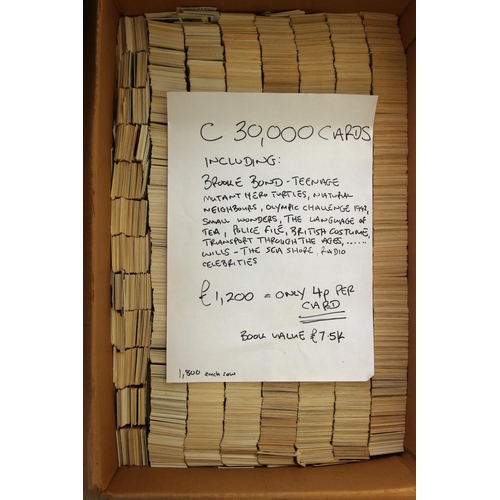 C 30,000 CARDS
INCLUDING:
BROOKE BOND - TEENAGE
MUTANT HERO TURTLES, NATURAL
NEIGHBOURS, OLYMPIC CHALLENGE 1992,
SMALL WONDERS, THE LANGUAGE OF
TEA, POLICE FILE, BRITISH COSTUME,
TRANSPORT THROUGH THE AGES, ......
WILLS - THE SEA SHORE, RADIO
CELEBRITIES
£1,200 = ONLY 4p PER
CARD
BOOK VALUE £7.5K
1,800 each row